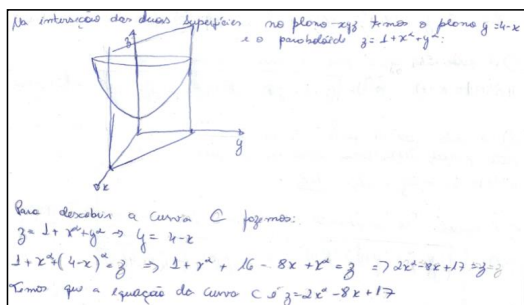 Na interseção das duas superfícies no plano-xyz temos o plano y=4-x
e o paraboloide z=1+x²+y²:
z
y
x
Para descobrir a curva C fazemos:
z=1+x²+y² → y=4-x
1+x²+(4-x)²=z ⇒ 1+x²+16-8x+x²=z ⇒ 2x²-8x+17=z
Temos que a equação da curva C é z=2x²-8x+17